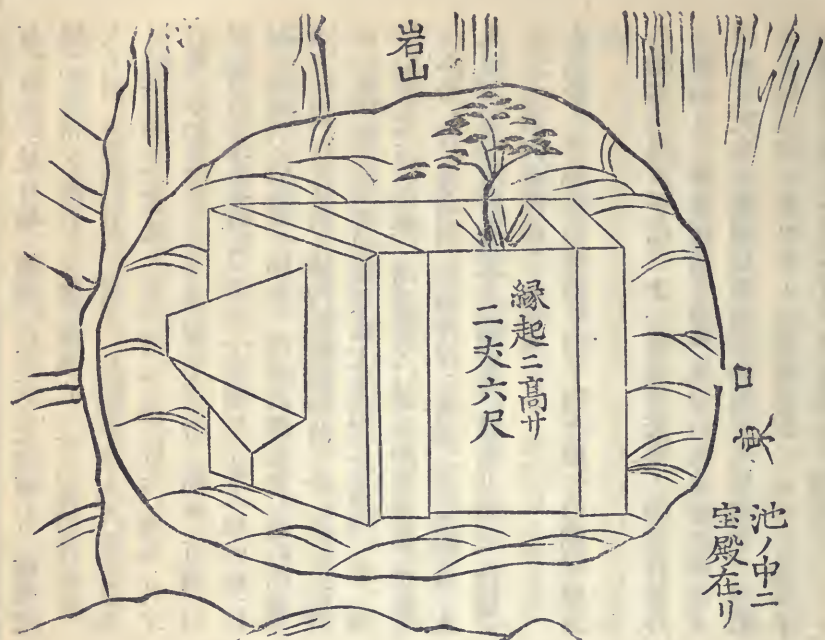 岩山
縁起ニ高サ
二丈六尺
口
東
池ノ中ニ
宝殿在リ